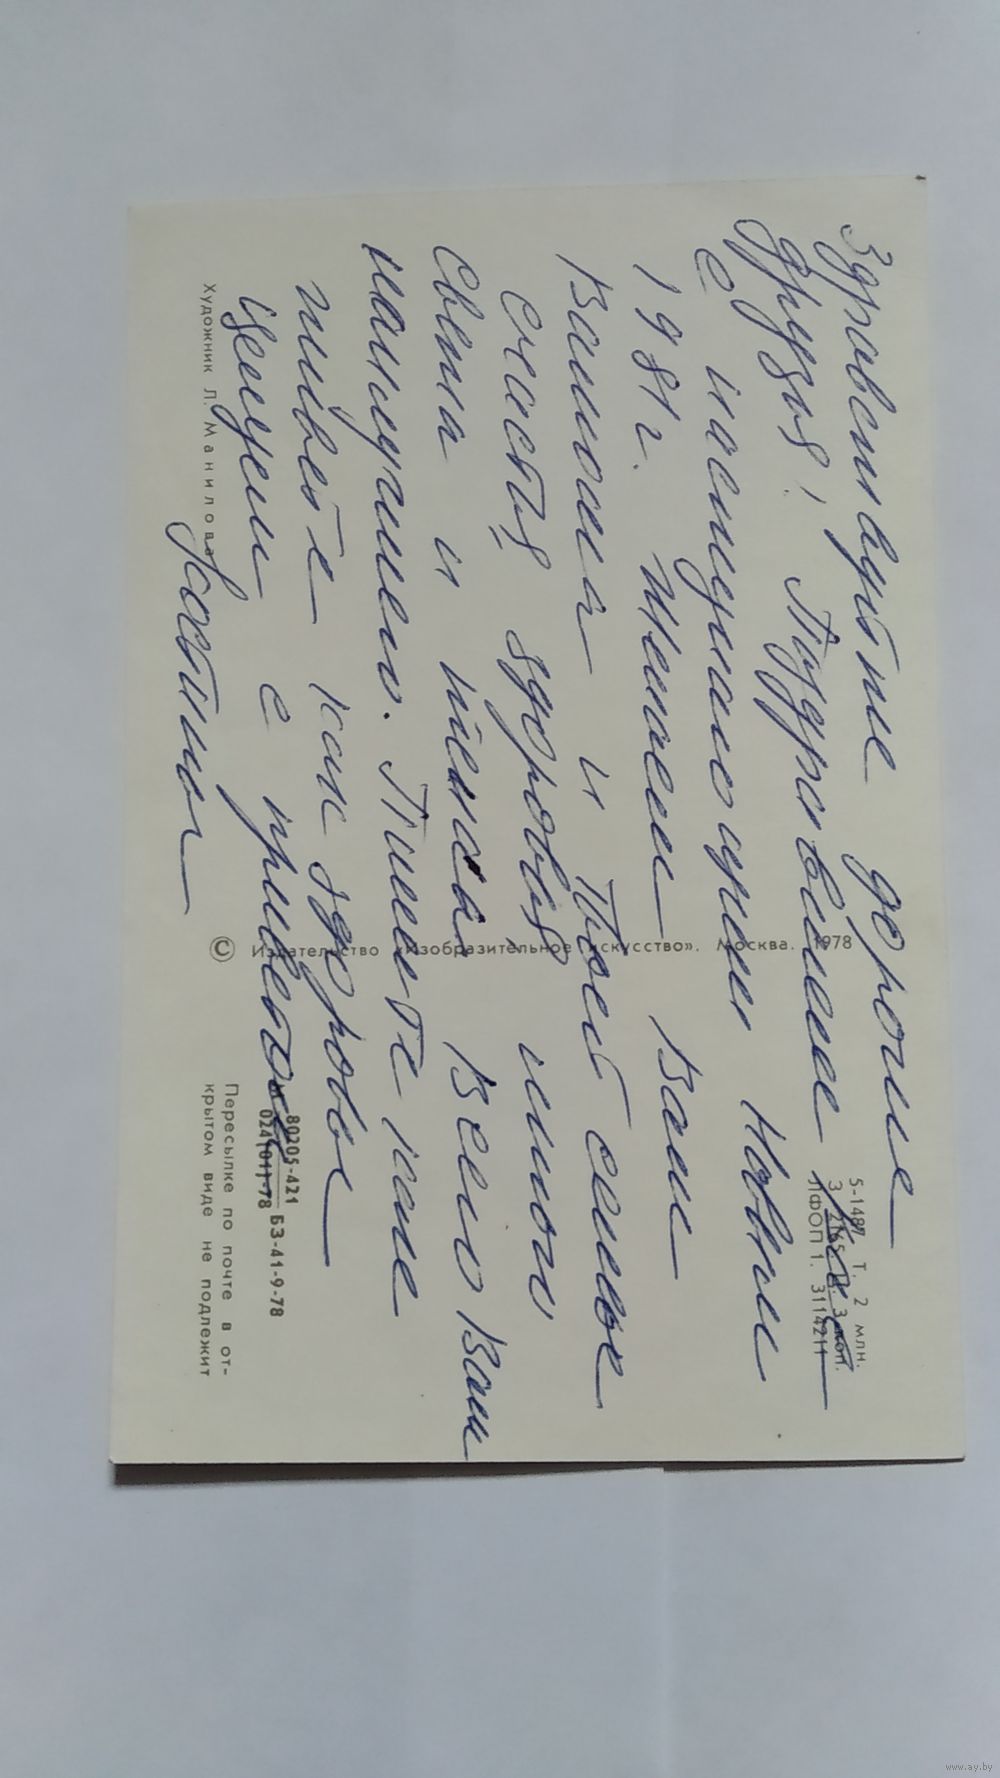 Здравствуйте дорогие
друзья! Поздравляем Вас
с наступающим Новым
1981 г. Желаем Вам
Вашей и твоей семье
счастья здоровья много
света и Всего Вам
наилучшего. Пишите как
живете как здоровье
целуем с приветом
Художник Л. Манилова
© Издательство «Изобразительное искусство». Москва. 1978
5-1487. Т. 2 млн.
ЛФОП 1. 3114211
80205-421
024(01)-78
БЗ-41-9-78
Пересылке по почте в от-
крытом виде не подлежит
www.ay.by